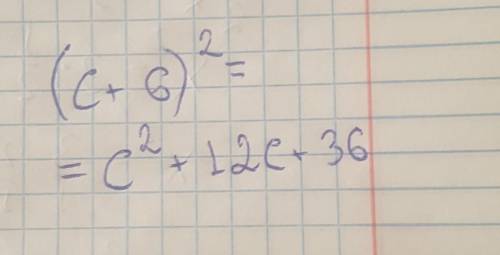 (c + 6)² =
= c² + 12c + 36